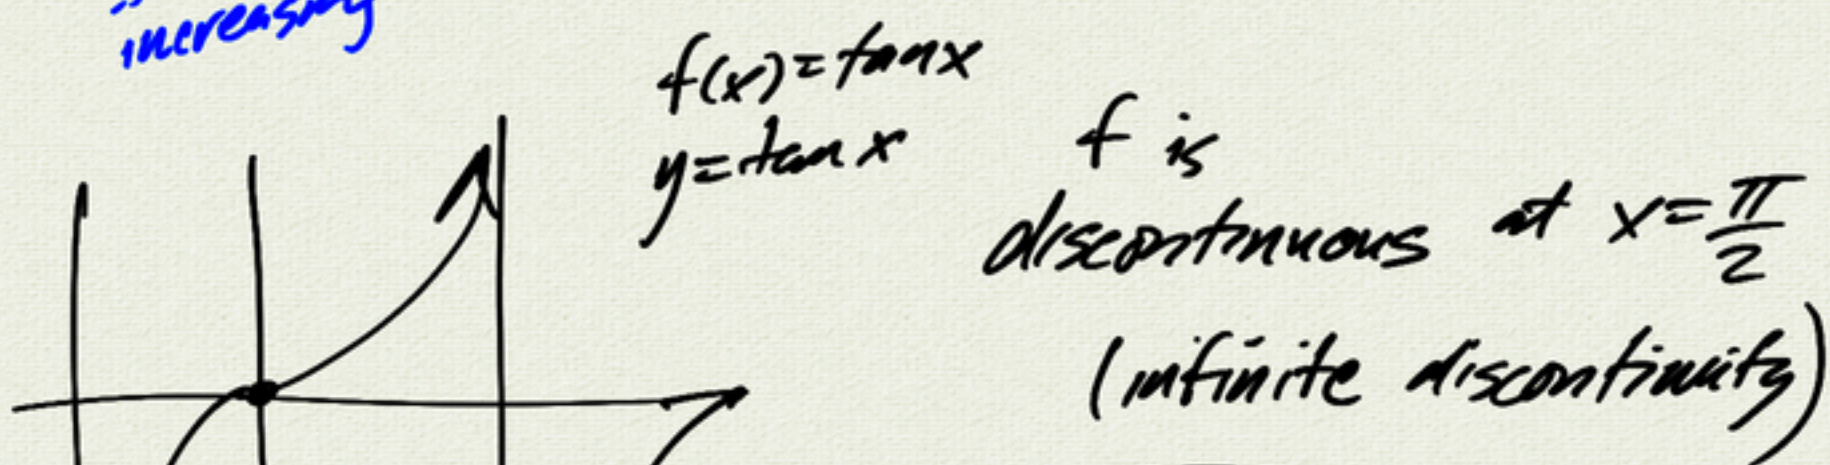 increasing
f(x)=tanx
y=tanx
f is
discontinuous at x=π/2
(infinite discontinuity)